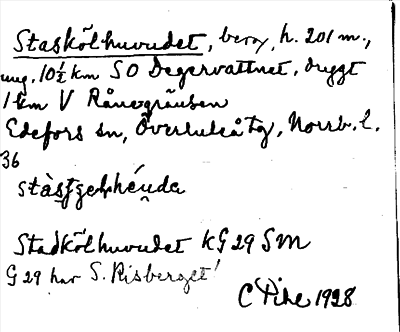 Staskölhuvudet, berg, h. 201 m.,
ung. 10½ km SO Degervattnet, drygt
1 km V Rånegränsen
Edefors sn, Överluleå tg, Norrb. l.
36
Stadkölhuvudet KG 29 SM
G 29 har S. Risberget!
C Pihl 1928